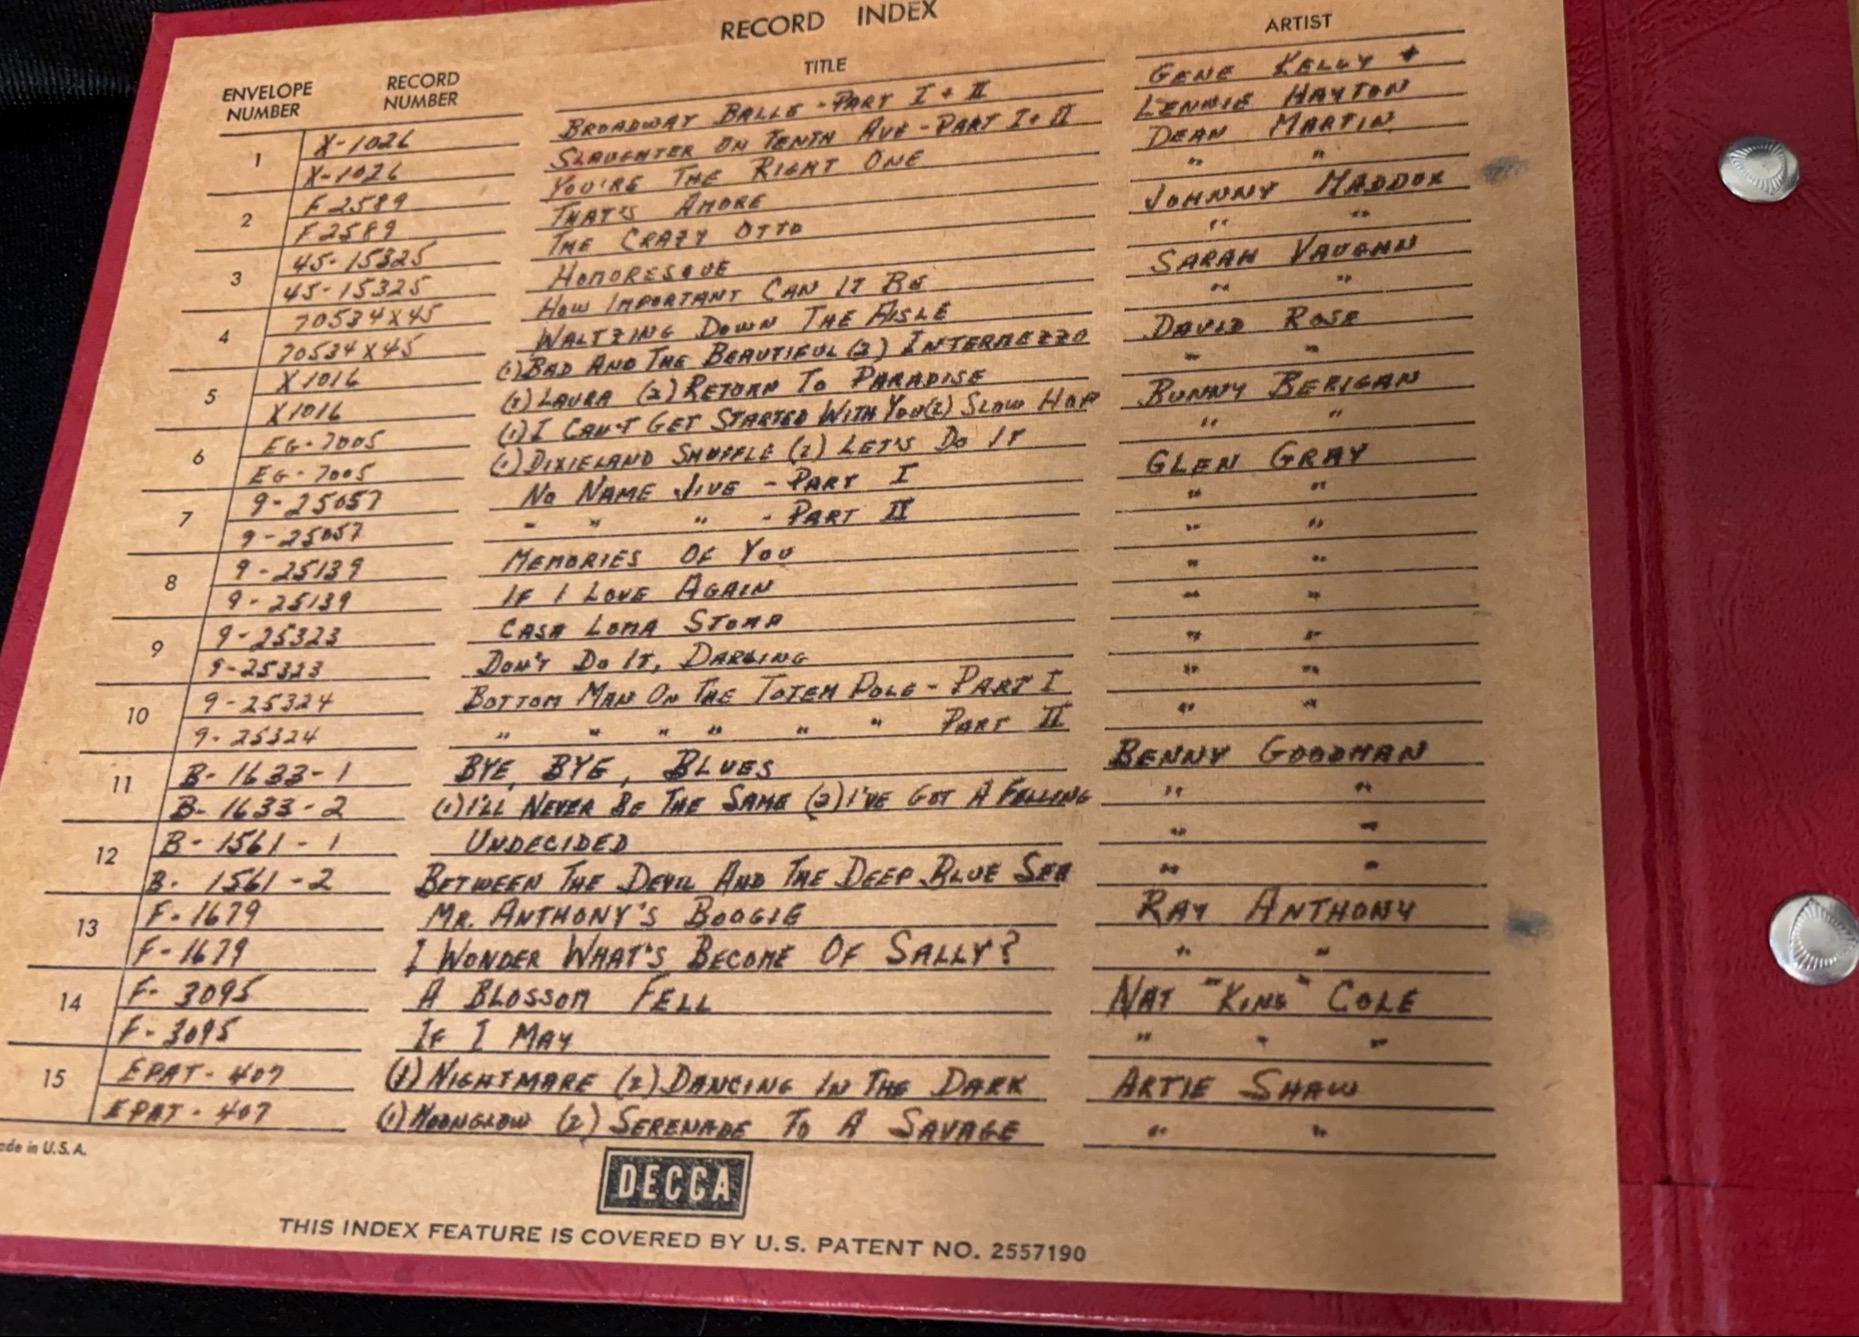 RECORD INDEX
ENVELOPE NUMBER RECORD NUMBER TITLE ARTIST
1 X-1026 BROADWAY BALLE - PART I + II GENE KELLY +
X-1026 SLAUGHTER ON TENTH AVE - PART I + II LENNIE HAYTON
2 F2589 YOU'RE THE RIGHT ONE DEAN MARTIN
F2589 THAT'S AMORE " "
3 45-15325 THE CRAZY OTTO JOHNNY MADDOX
45-15325 HUMORESQUE " "
4 70534X45 HOW IMPORTANT CAN IT BE SARAH VAUGHN
70534X45 WALTZING DOWN THE AISLE " "
5 X1016 (1) BAD AND THE BEAUTIFUL (2) INTERMEZZO DAVID ROSE
X1016 (1) LAURA (2) RETURN TO PARADISE " "
6 EG-7005 (1) I CAN'T GET STARTED WITH YOU (2) SLOW HOP BUNNY BERIGAN
EG-7005 (1) DIXIELAND SHUFFLE (2) LET'S DO IT " "
7 9-25057 NO NAME JIVE - PART I GLEN GRAY
9-25057 " " " - PART II " "
8 9-25139 MEMORIES OF YOU " "
9-25139 IF I LOVE AGAIN " "
9 9-25323 CASA LOMA STOMP " "
9-25323 DON'T DO IT, DARLING " "
10 9-25324 BOTTOM MAN ON THE TOTEM POLE - PART I " "
9-25324 " " " " " " PART II " "
11 B-1633-1 BYE, BYE, BLUES BENNY GOODMAN
B-1633-2 (1) I'LL NEVER BE THE SAME (2) I'VE GOT A FELLING " "
12 B-1561-1 UNDECIDED " "
B-1561-2 BETWEEN THE DEVIL AND THE DEEP BLUE SEA " "
13 F-1679 MR. ANTHONY'S BOOGIE RAY ANTHONY
F-1679 I WONDER WHAT'S BECOME OF SALLY? " "
14 F-3095 A BLOSSOM FELL NAT "KING" COLE
F-3095 IF I MAY " " "
15 EPAT-407 (1) NIGHTMARE (2) DANCING IN THE DARK ARTIE SHAW
EPAT-407 (1) MOONGLOW (2) SERENADE TO A SAVAGE " "
in U.S.A.
DECCA
THIS INDEX FEATURE IS COVERED BY U.S. PATENT NO. 2557190